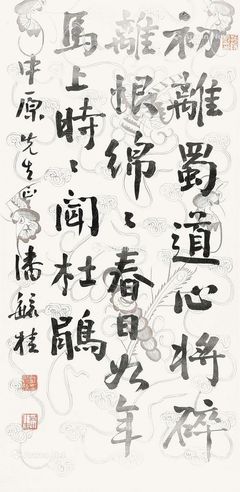 初離蜀道心將碎
離恨綿〻春日如年
馬上時〻聞杜鵑
中原先生正 潘毓桂